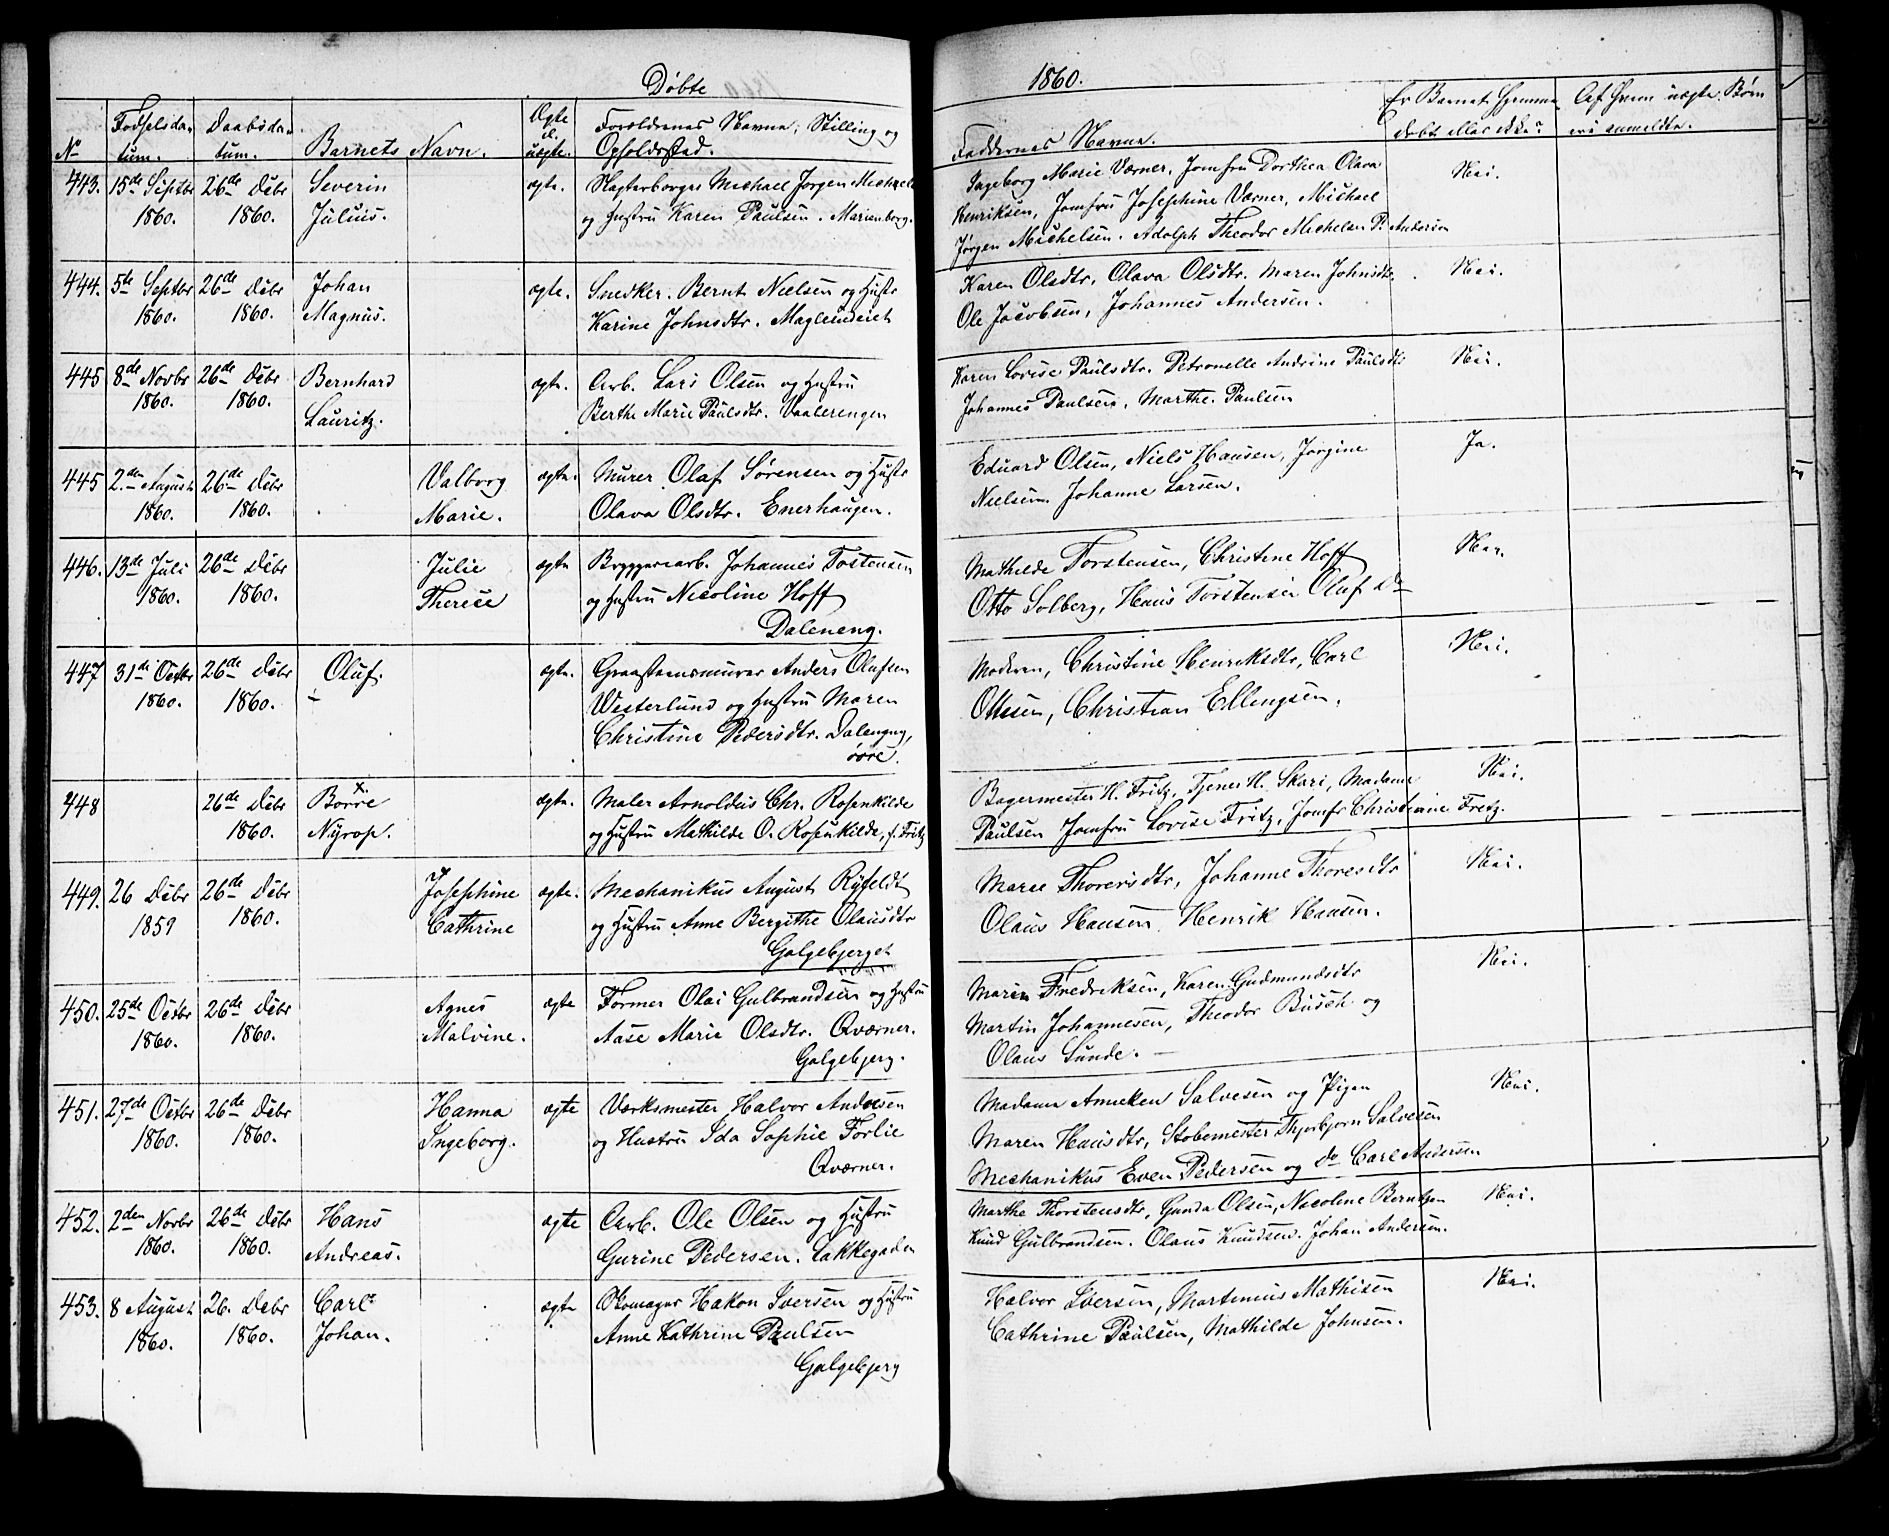 Døbte
1860.
No
Fødselsda-
tum.
Daabsda-
tum.
Barnets Navn.
Ægte
el.
uægte.
Forældrenes Navne, Stilling og
Opholdssted.
Faddernes Navne.
Er Barnet hjemme
døbt eller ikke?
Af hvem uægte Børn
ere anmeldte.
443. 15de Septbr 26de Debr Severin ægte. Slagterborger Michael Jørgen Michaels
1860. 1860. Julius. og Hustru Karen Paulsen. Marienborg.
Ingeborg Marie Værner, Jomfru Dorthea Olava Nei.
Henriksen, Jomfru Josephine Værner, Michael
Jørgen Michelsen. Adolph Theodor Michelsen P. Andersen
444. 5te Septbr 26de Debr Johan ægte. Snedker. Bernt Nielsen og Hustr
1860. 1860. Magnus. Karine Johnsdtr.
Karen Olsdtr, Olava Olsdtr. Maren Johnsdtr. Nei.
Ole Jacobsen, Johannes Andersen.
445 8de Novbr 26de Debr Bernhard ægte. Arb. Lars Olsen og Hustru
1860. 1860. Lauritz. Berthe Marie Paulsdtr. Vaalerengen
Karen Lovise Paulsdtr. Petronelle Andrine Paulsdtr Nei.
Johannes Paulsen, Marthe Paulsen
445 2den August 26de Debr Valborg ægte. Murer Olaf Sørensen og Hustr
1860. 1860. Marie. Olava Olsdtr. Enerhaugen.
Eduard Olsen, Niels Hansen, Jørgine Ja.
Nielsen. Johanne Larsen.
446. 13de Juli 26de Debr Julie ægte Bryggeriarb. Johannes Tostensen
1860. 1860. Therese og Hustru Nicoline Hoff
Daleneng.
Mathilde Torstensen, Christine Hoff Nei.
Otto Solberg, Hans Torstensen Oluf do
447 31de Octbr 26de Debr Oluf. ægte. Graasteensmurer Anders Olufsen
1860. 1860. Westerlund og Hustru Maren
Christine Pedersdtr. Dalengng,
øvre.
Moderen, Christine Henriksdtr, Carl Nei.
Ottesen, Christian Ellingsen.
448 26de Debr Borre x. ægte. Maler Arnoldus Chr. Rosenkilde
1860. Nyrop. og Hustru Mathilde O. Rosenkilde, f. Fritz
Bagermester H. Fritz, Tjener H. Skari, Madame Nei.
Paulsen Jomfru Lovise Fritz, Jomfr Christiane Fretz.
449. 26 Debr 26de Debr Josephine ægte. Mechanikus August Ryfeldt
1859 1860. Cathrine og Hustru Anne Bergithe Olausdtr
Galgebjerget
Maree Thorersdtr, Johanne Thoresdtr Nei.
Olaus Hansen, Henrik Hansen.
450. 25de Octbr 26de Debr Agnes ægte Former Olai Gulbrandsen og Hustru
1860. 1860. Malvine. Aase Marie Olsdtr. Qværner.
Galgebjerg.
Maren Fredriksen, Karen Gudmundsdtr Nei.
Martin Johannesen, Theodor Busch og
Olaus Sunde.
451. 27de Octbr 26de Debr Hanna ægte Værksmester Halvor Andresen
1860. 1860. Ingeborg. og Hustru Ida Sophie Forlie
Qværner.
Madame Anneken Salvesen og Pigen Nei.
Maren Hansdtr, Støbemester Thjorbjørn Salvesen
Mechanikus Even Pedersen og do Carl Andersen
452. 2den Novbr 26de Debr Hans ægte Arb. Ole Olsen og Hustru
1860. 1860. Andreas. Gurine Pedersen. Lakkegaden
Marthe Thorstensdtr, Gunda Olsen, Nicoline Berntzen Nei.
Knud Gulbrandsen. Olaus Knudsen. Johan Andersen.
453. 8 August 26. Debr Carl ægte Skomager Hakon Iversen og Hustru
1860. 1860. Johan. Anne Kathrine Paulsen
Galgebjerg
Halvor Iversen, Martinius Mathisen Nei.
Cathrine Paulsen, Mathilde Johnsen.